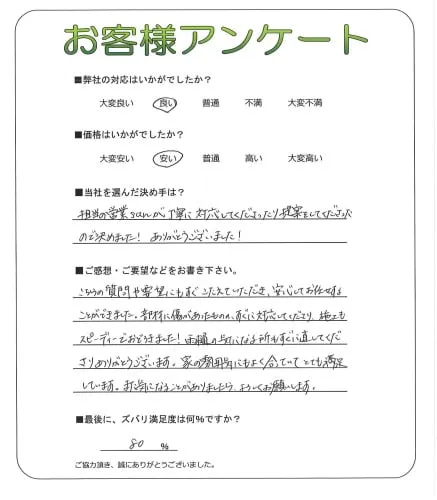 お客様アンケート
■弊社の対応はいかがでしたか?
大変良い 良い 普通 不満 大変不満
■価格はいかがでしたか?
大変安い 安い 普通 高い 大変高い
■当社を選んだ決め手は?
担当の営業sanが丁寧に対応してくださったり提案をしてくださった
ので決めました! ありがとうございました!
■ご感想・ご要望などをお書き下さい。
こちらの質問や要望にもすぐこたえていただき、安心してお任せする
ことができました。部材に傷があったものの、すぐに対応してくださり、施工も
スピーディーでおどろきました!雨樋の気になる所もすぐに直してくだ
さりありがとうございます。家の雰囲気にもよく合っていてとても満足
しています。また気になることがありましたら、よろしくお願いします。
■最後に、ズバリ満足度は何%ですか?
80 %
ご協力頂き、誠にありがとうございました。